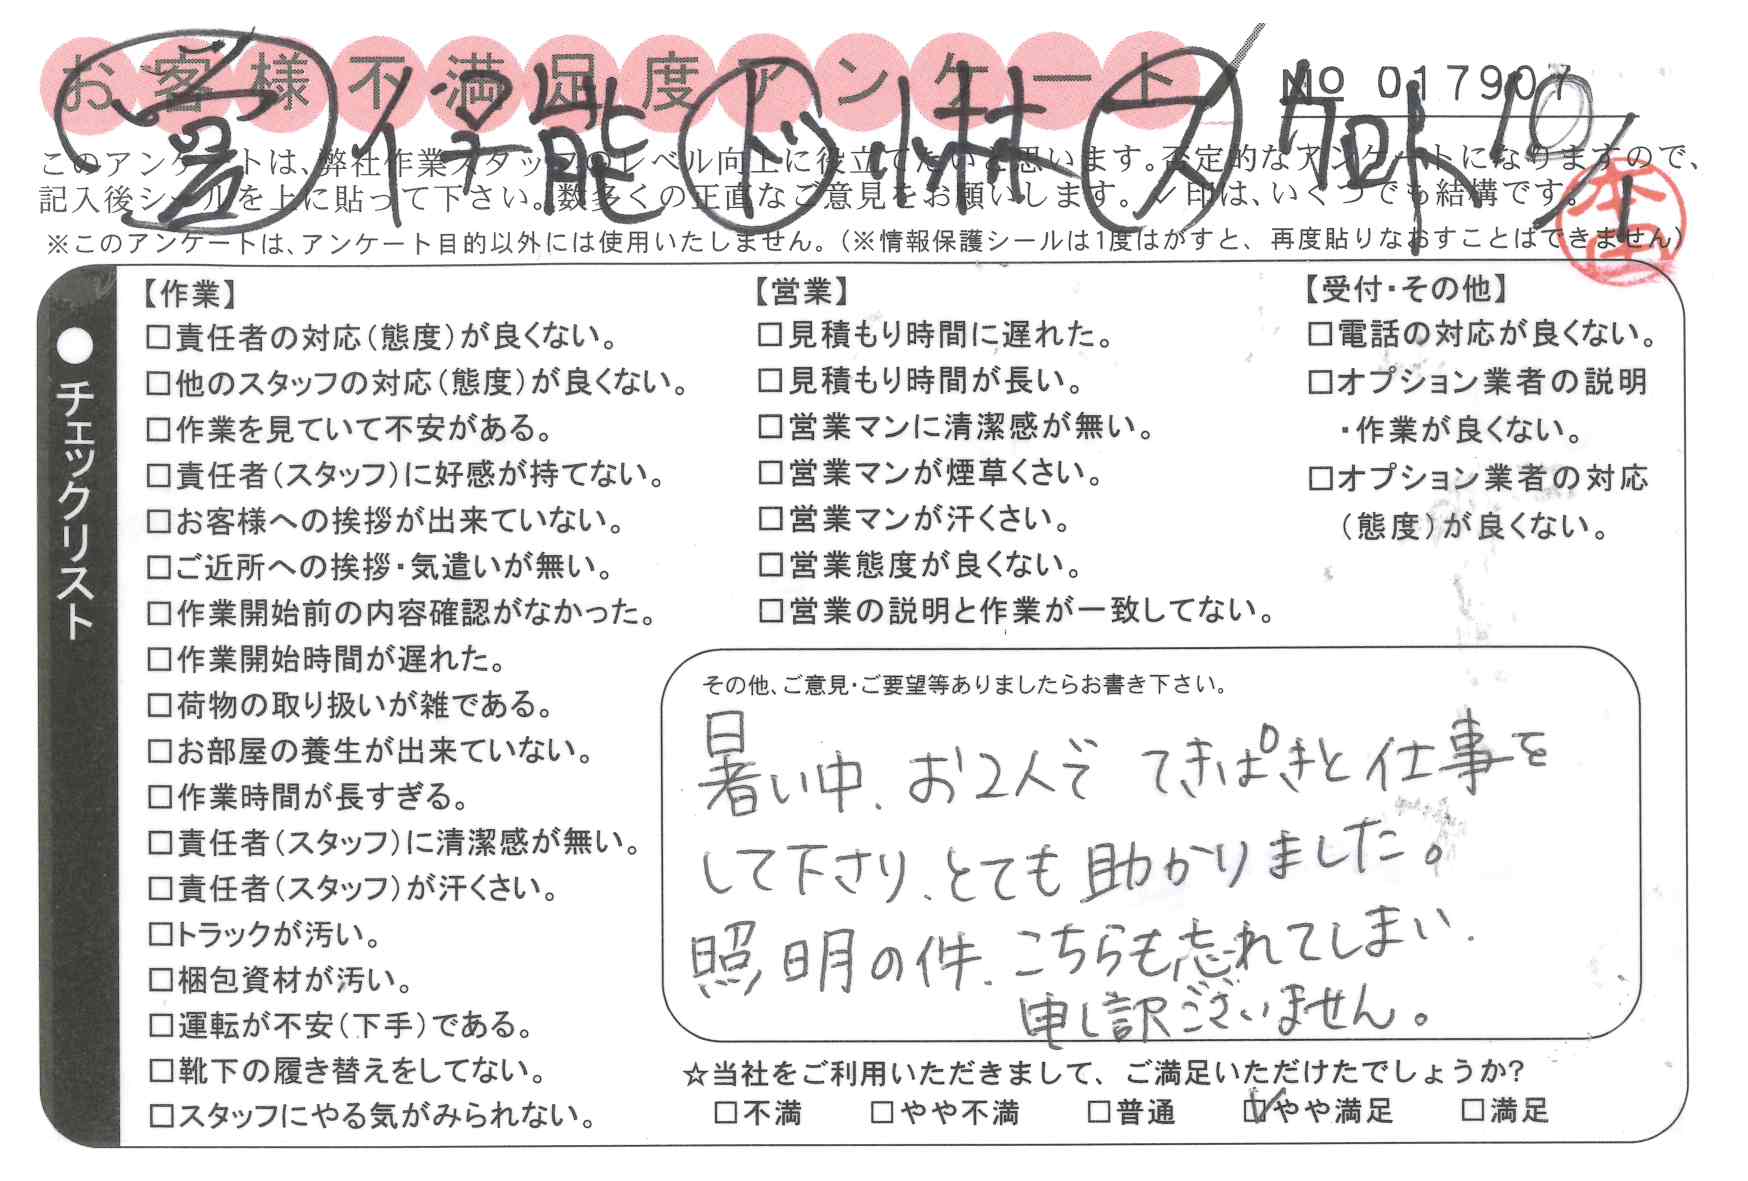 お客様不満足度アンケート
No 017907
このアンケートは、弊社作業スタッフのレベル向上に役立てたいと思います。否定的なアンケートになりますので、
記入後シールを上に貼って下さい。数多くの正直なご意見をお願いします。✓印は、いくつでも結構です。
※このアンケートは、アンケート目的以外には使用いたしません。(※情報保護シールは1度はがすと、再度貼りなおすことはできません)
本田
●チェックリスト
【作業】
□責任者の対応(態度)が良くない。
□他のスタッフの対応(態度)が良くない。
□作業を見ていて不安がある。
□責任者(スタッフ)に好感が持てない。
□お客様への挨拶が出来ていない。
□ご近所への挨拶・気遣いが無い。
□作業開始前の内容確認がなかった。
□作業開始時間が遅れた。
□荷物の取り扱いが雑である。
□お部屋の養生が出来ていない。
□作業時間が長すぎる。
□責任者(スタッフ)に清潔感が無い。
□責任者(スタッフ)が汗くさい。
□トラックが汚い。
□梱包資材が汚い。
□運転が不安(下手)である。
□靴下の履き替えをしてない。
□スタッフにやる気がみられない。
【営業】
□見積もり時間に遅れた。
□見積もり時間が長い。
□営業マンに清潔感が無い。
□営業マンが煙草くさい。
□営業マンが汗くさい。
□営業態度が良くない。
□営業の説明と作業が一致してない。
【受付・その他】
□電話の対応が良くない。
□オプション業者の説明
・作業が良くない。
□オプション業者の対応
(態度)が良くない。
その他、ご意見・ご要望等ありましたらお書き下さい。
暑い中、お2人で てきぱきと仕事を
して下さり、とても助かりました。
照明の件、こちらも忘れてしまい、
申し訳ございません。
☆当社をご利用いただきまして、ご満足いただけたでしょうか?
□不満 □やや不満 □普通 ☑やや満足 □満足